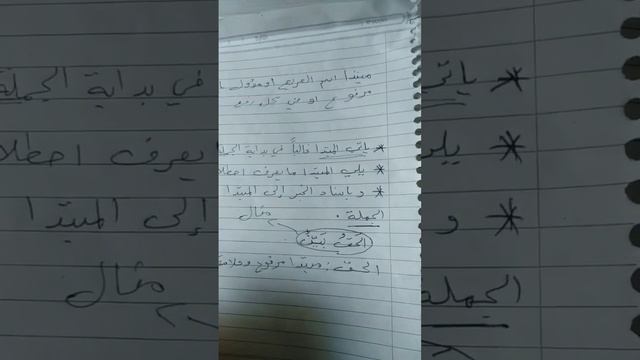 مبتدأ اسم الصريح او مؤول
مرفوع او في محل رفع
* يأتي المبتدأ غالباً في بداية الجملة
* يلي المبتدأ ما يعرف اصطلا
* و باسناد الخبر إلى المبتدأ
الجملة . مثال
الحقُ بَيّنٌ
الحق : مبتدأ مرفوع وعلامة